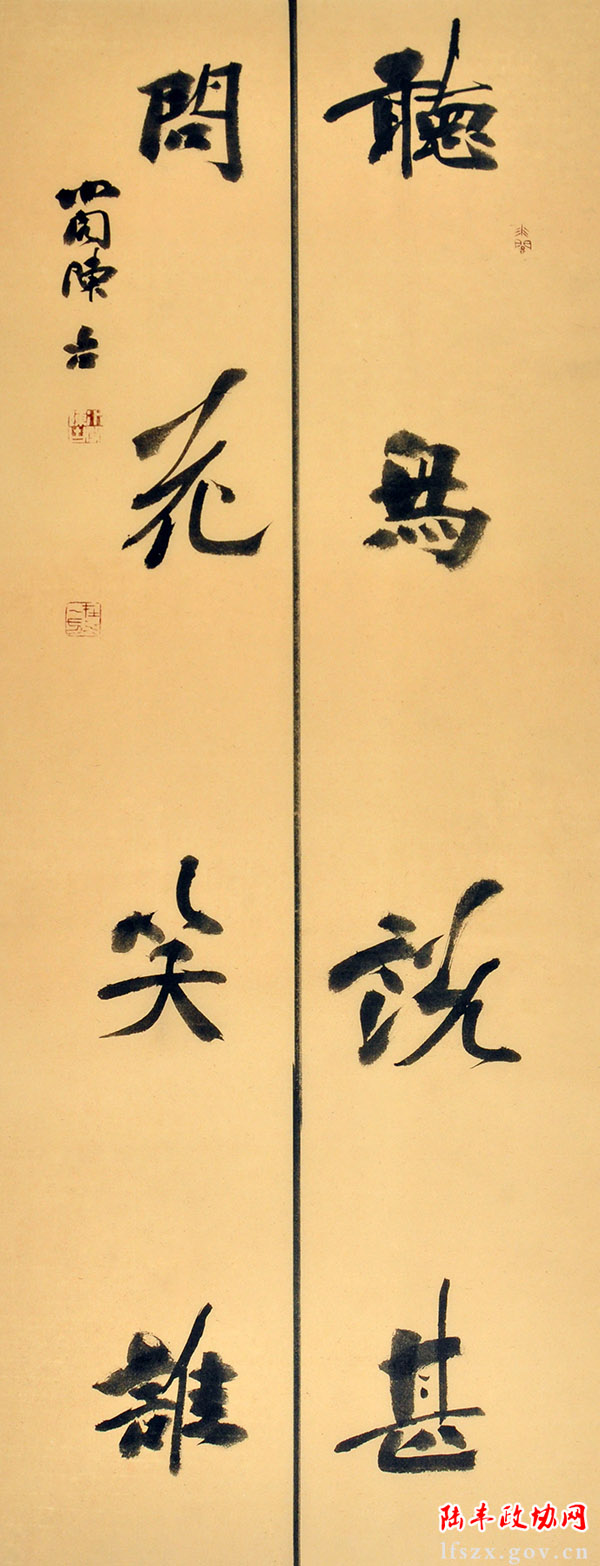 聽鳥說甚
問花笑誰
陳
陆丰政协网
lfszx.gov.cn